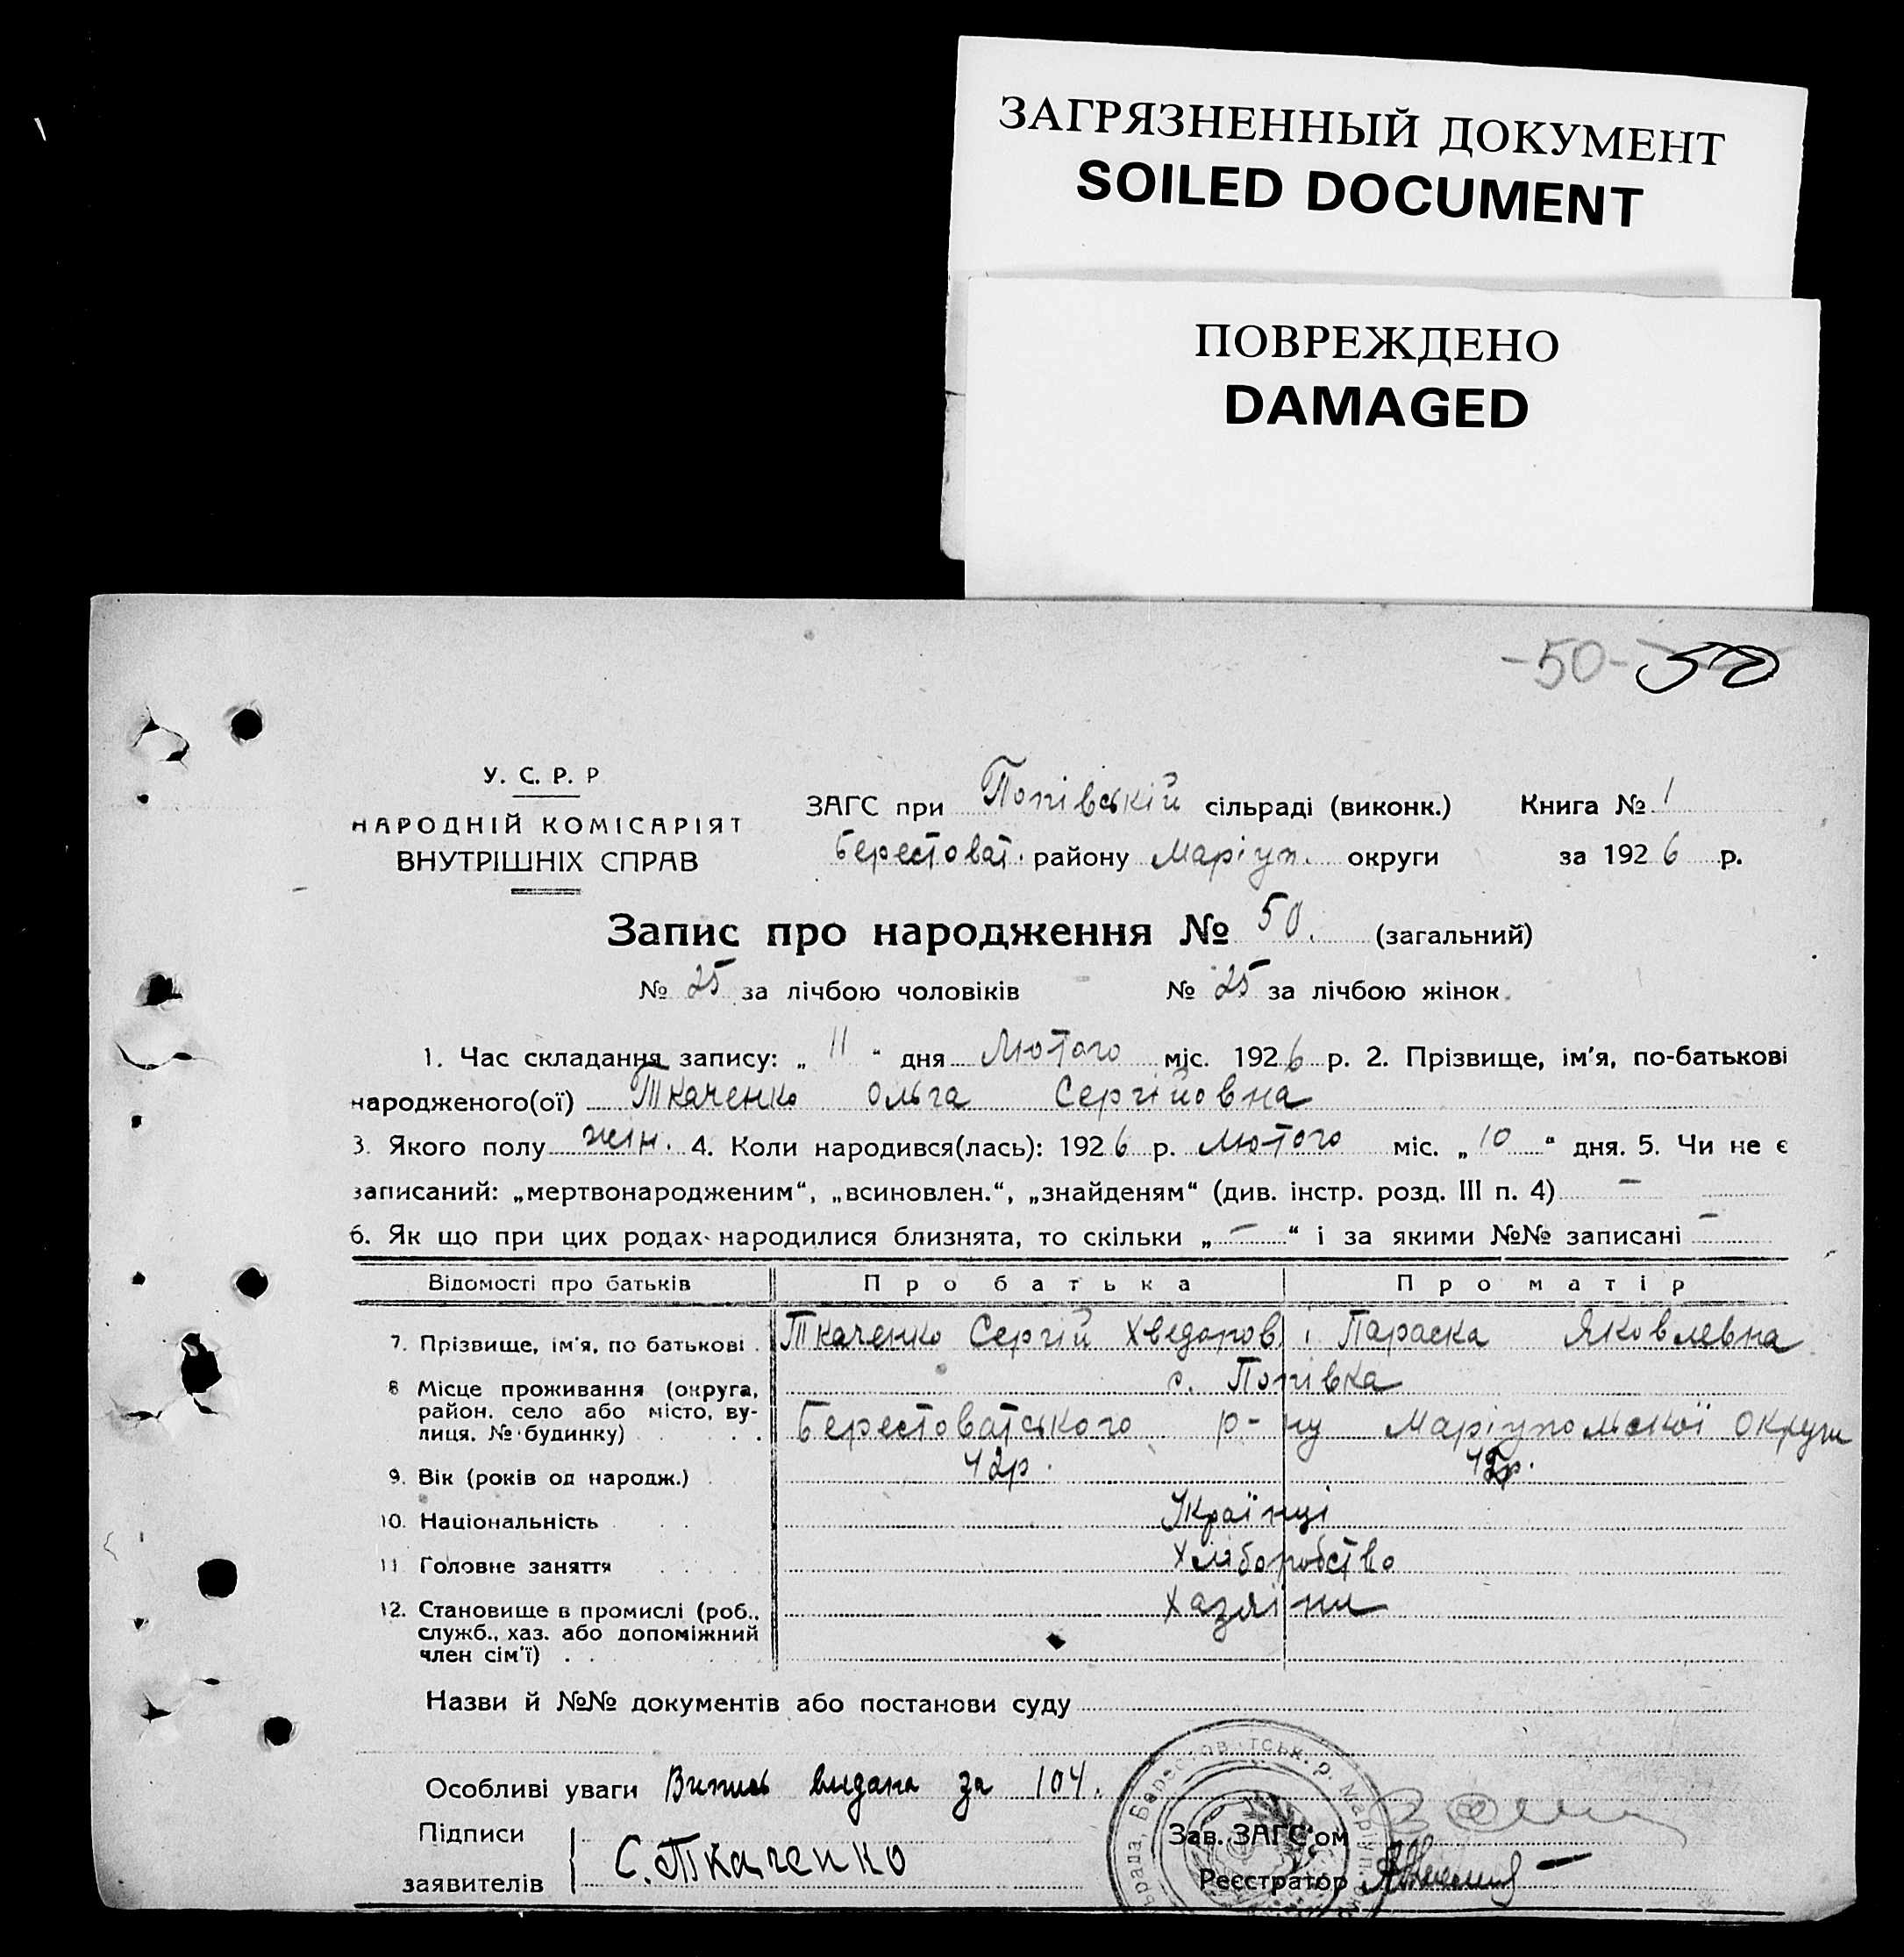 ЗАГРЯЗНЕННЫЙ ДОКУМЕНТ
SOILED DOCUMENT
ПОВРЕЖДЕНО
DAMAGED
-50- 50
У. С. Р. Р
НАРОДНІЙ КОМІСАРІЯТ
ВНУТРІШНІХ СПРАВ
ЗАГС при Попівській сільраді (виконк.) Книга № 1
Берестоват. району Маріуп. округи за 1926 р.
Запис про народження № 50. (загальний)
№ 25 за лічбою чоловіків № 25 за лічбою жінок
1. Час складання запису: „ 11 “ дня Лютого міс. 1926 р. 2. Прізвище, ім'я, по-батькові
народженого(ої) Ткаченко Ольга Сергійовна
3. Якого полу жін. 4. Коли народився(лась): 1926 р. лютого міс. „ 10 “ дня. 5. Чи не є
записаний: „мертвонародженим“, „всиновлен.“, „знайденям“ (див. інстр. розд. III п. 4) —
6. Як що при цих родах народилися близнята, то скільки „ — “ і за якими №№ записані —
Відомості про батьків Про батька Про матір
7. Прізвище, ім'я, по батькові . Ткаченко Сергій Хведоров і Параска Яковлевна
8 Місце проживання (округа, с. Попівка
район, село або місто, ву-
лиця, № будинку) . . . Берестоватського р-ну Маріупольської округи
9. Вік (років од народж.) 42р. 42р.
10. Національність Українці
11 Головне заняття Хліборобство
12. Становище в промислі (роб., Хазяїни
служб., хаз. або допоміжний
член сім'ї) . .
Назви й №№ документів або постанови суду
Особливі уваги Випись видана за 104.
Підписи
заявителів С. Ткаченко
Зав. ЗАГС'ом
Реєстратор